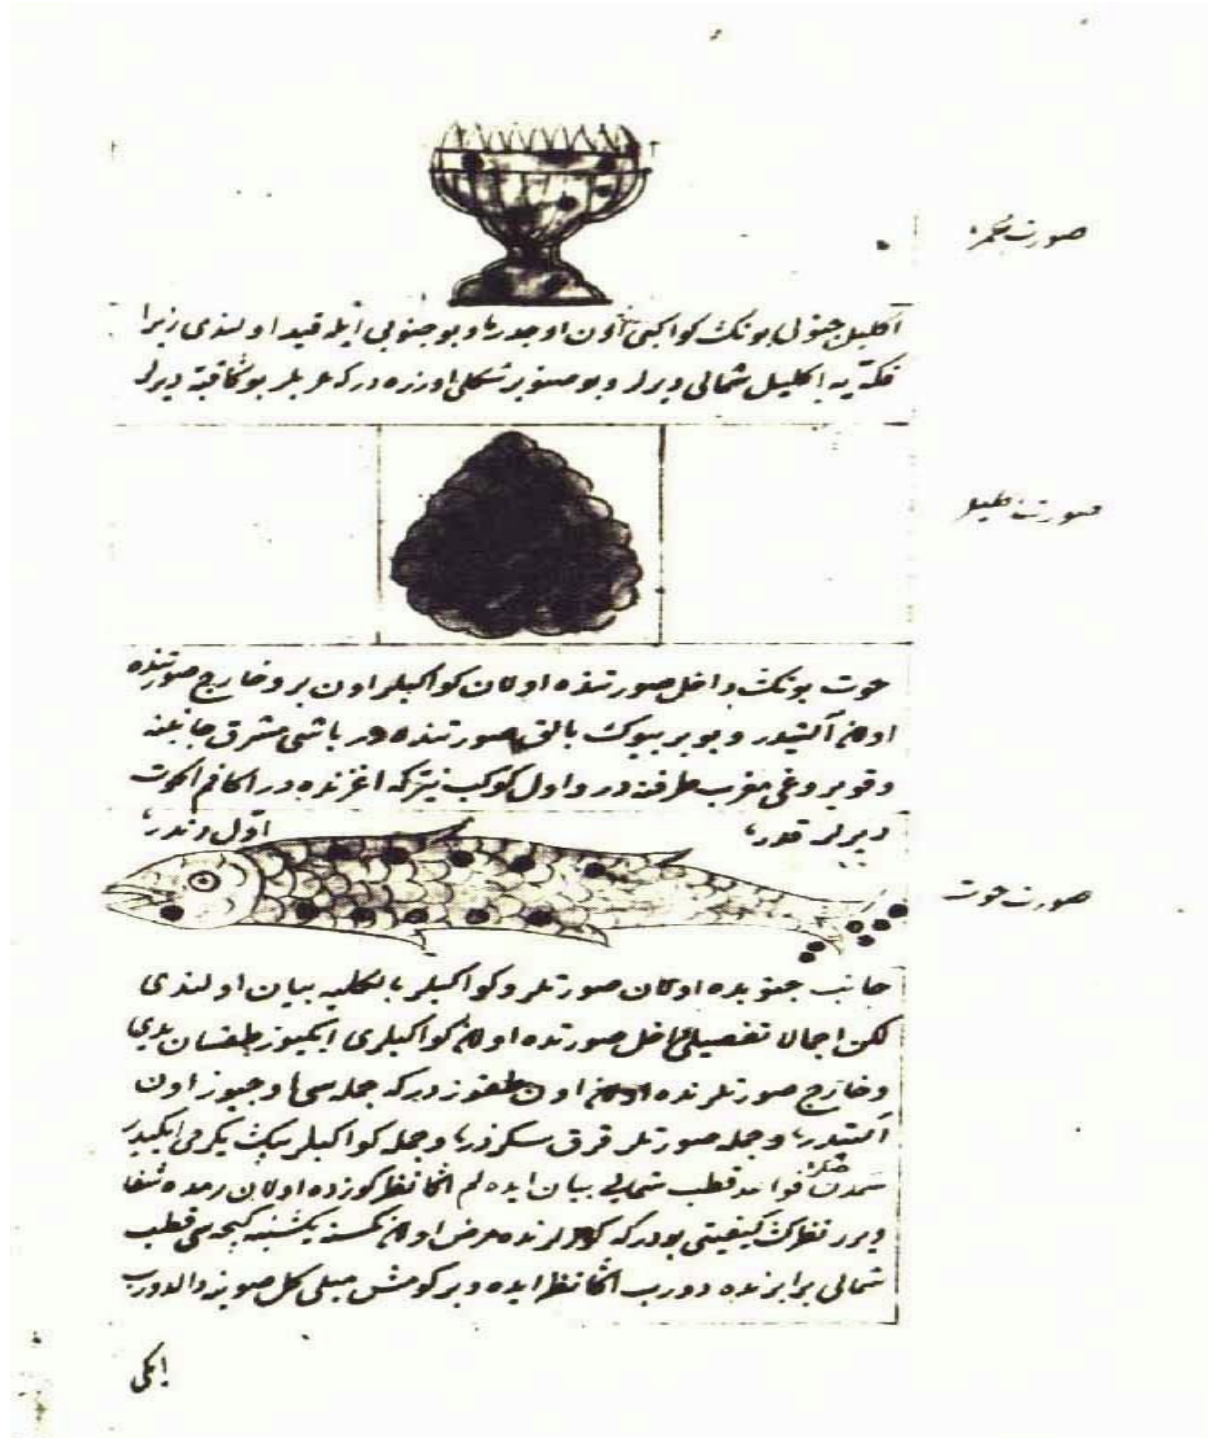 صورت مجمره
اكليل جنوبى بونك كواكبى اون اوچدر و بو جنوبى ايله قيد اولندى زيرا
فكه يه اكليل شمالى ديرلر و بو صنوبر شكلى اوزره دركه عربلر بوكا قبه ديرلر
صورت اكليل
حوت بونك داخل صورتنده اولان كواكبلر اون بر و خارج صورتنده
اولان آلتيدر و بو بر بيوك بالق صورتنده در باشى مشرق جانبنه
و قويروغى مغرب طرفنه در و اول كوكب نيركه اغزنده در اكا فم الحوت
ديرلر قدر اولدندر
صورت حوت
جانب جنوبده اولان صورتلر و كواكبلر بالكليه بيان اولندى
لكن اجمالا تفصيلى داخل صورتده اولان كواكبلرى ايكيوز طقسان يدى
و خارج صورتلرنده اولان اون طقوز دركه جمله سى اوچيوز اون
آلتيدر و جمله صورتلر قرق سكزدر و جمله كواكبلر بيك يكرمى ايكيدر
فوائد قطب شمالى بيان ايده لم اكا نظر كوزده اولان رمده شفا
ويرر نظرك كيفيتى بودركه كوزلرنده مرض اولان كمسنه يكشنبه كيجه سى قطب
شمالى برابرنده دوروب اكا نظر ايده و بر كومش ميلى
ايكى